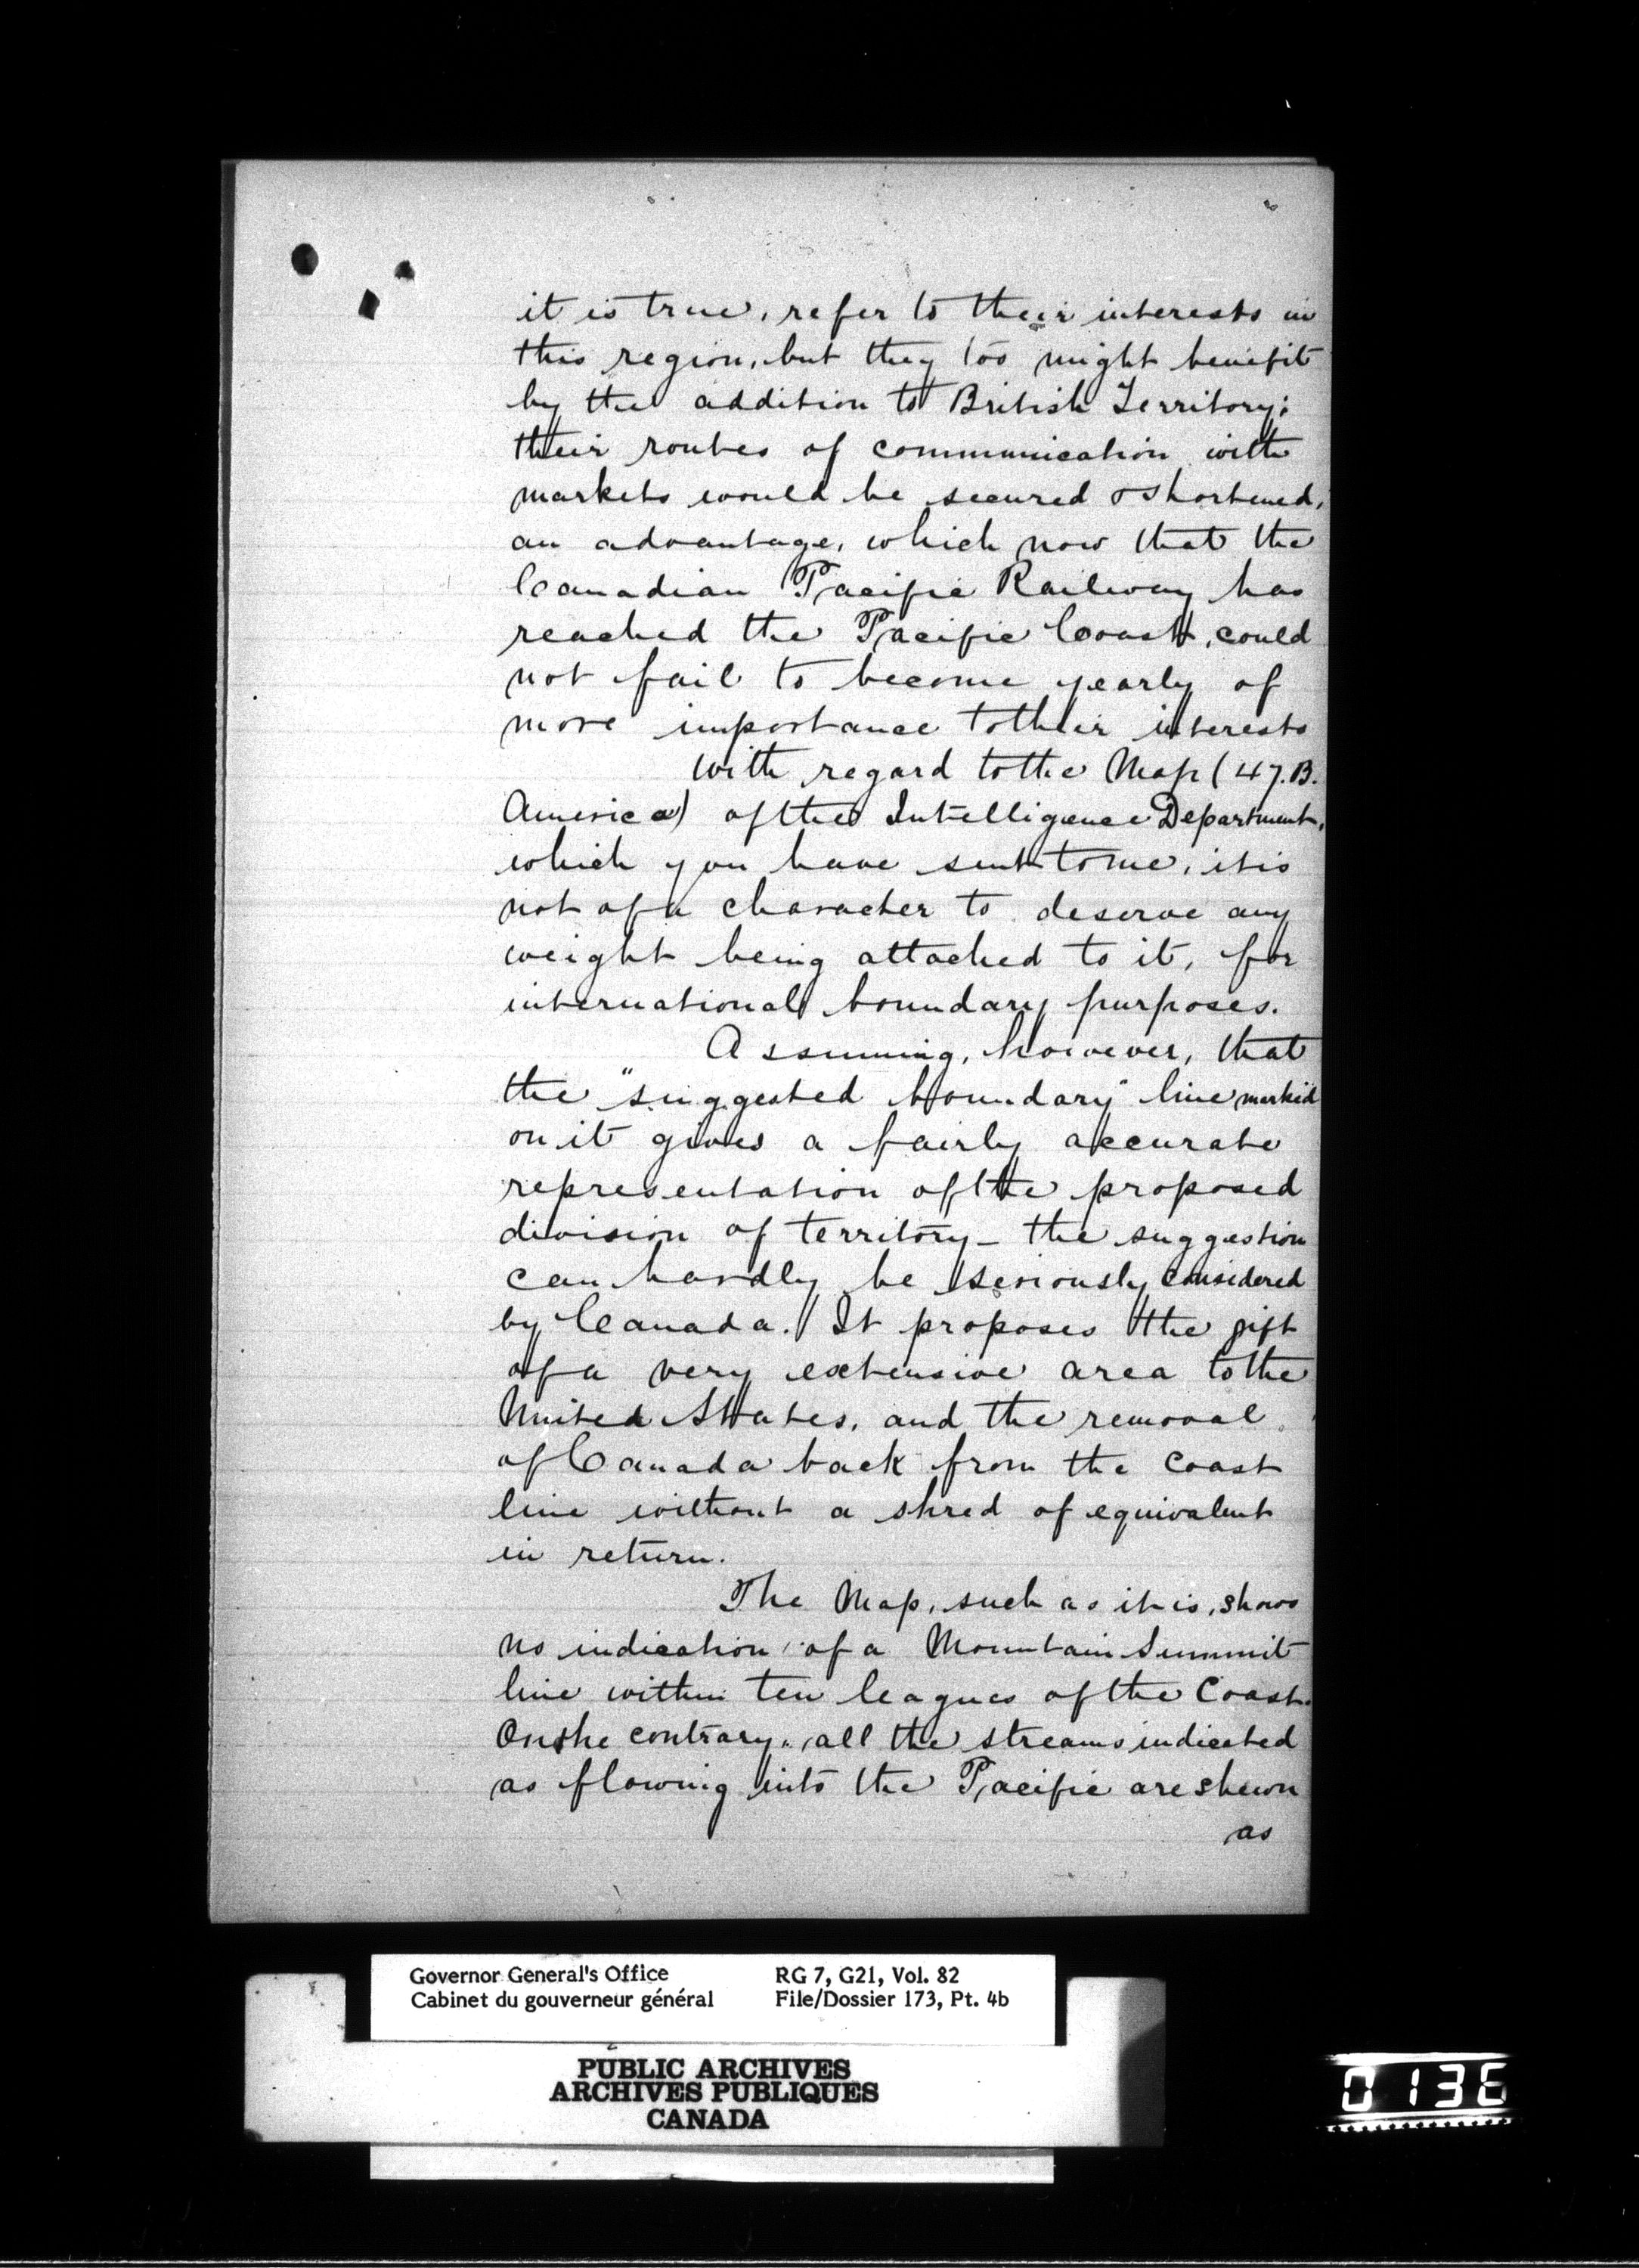 it is true, refer to their interests in
this region, but they too might benefit
by the addition to British Territory;
their routes of communication with
markets would be secured & shortened,
an advantage, which now that the
Canadian Pacific Railway has
reached the Pacific Coast, could
not fail to become yearly of
more importance to their interests
With regard to the Map (47. B.
America) of the Intelligence Department,
which you have sent to me, it is
not of a character to deserve any
weight being attached to it, for
international boundary purposes.
Assuming, however, that
the "suggested boundary" line marked
on it gives a fairly accurate
representation of the proposed
division of territory – the suggestion
can hardly be seriously considered
by Canada. It proposes the gift
of a very extensive area to the
United States, and the removal
of Canada back from the coast
line without a shred of equivalent
in return.
The Map, such as it is, shows
no indication of a Mountain Summit
line within ten leagues of the Coast.
On the contrary, all the streams indicated
as flowing into the Pacific are shewn
as
Governor General's Office RG 7, G21, Vol. 82
Cabinet du gouverneur général File/Dossier 173, Pt. 4b
PUBLIC ARCHIVES
ARCHIVES PUBLIQUES
CANADA
0136